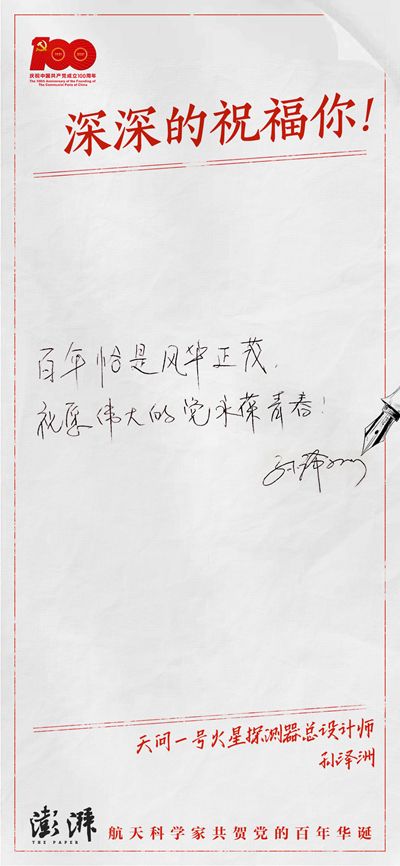 100
庆祝中国共产党成立100周年
The 100th Anniversary of the Founding of
The Communist Party of China
深深的祝福你!
百年恰是风华正茂,
祝愿伟大的党永葆青春!
孙泽洲
天问一号火星探测器总设计师
孙泽洲
澎湃
THE PAPER
航天科学家共贺党的百年华诞